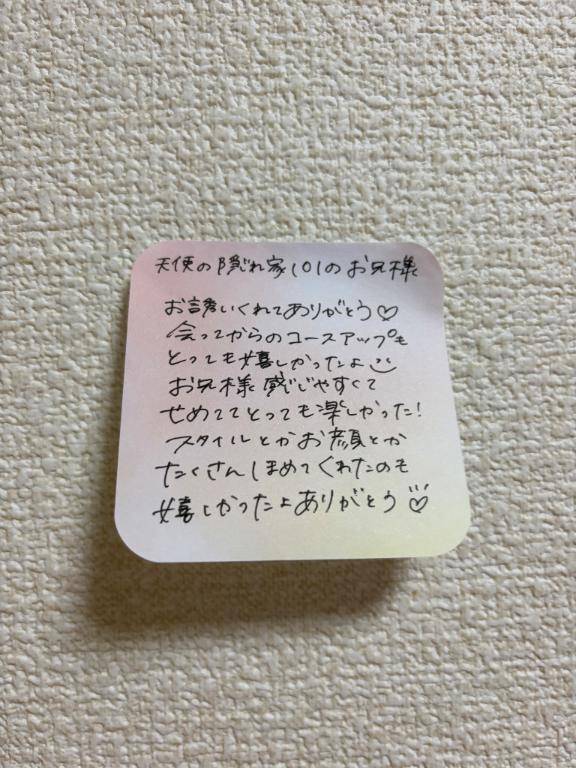 天使の隠れ家101のお兄様
お誘いくれてありがとう♡
会ってからのコースアップも
とっても嬉しかったよ
お兄様感じやすくて
せめててとっても楽しかった!
スタイルとかお顔とか
たくさんほめてくれたのも
嬉しかったよありがとう♡